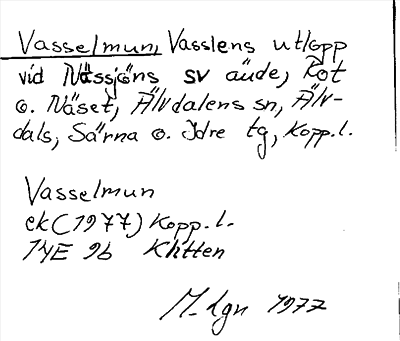 Vasselmun, Vasslens utlopp
vid Nässjöns sv ände, Rot
o. Näset, Älvdalens sn, Älv-
dals, Särna o. Idre tg, Kopp.l.
Vasselmun
ek (1977) Kopp.l.
14E 9b Klitten
M-Lgn 1977